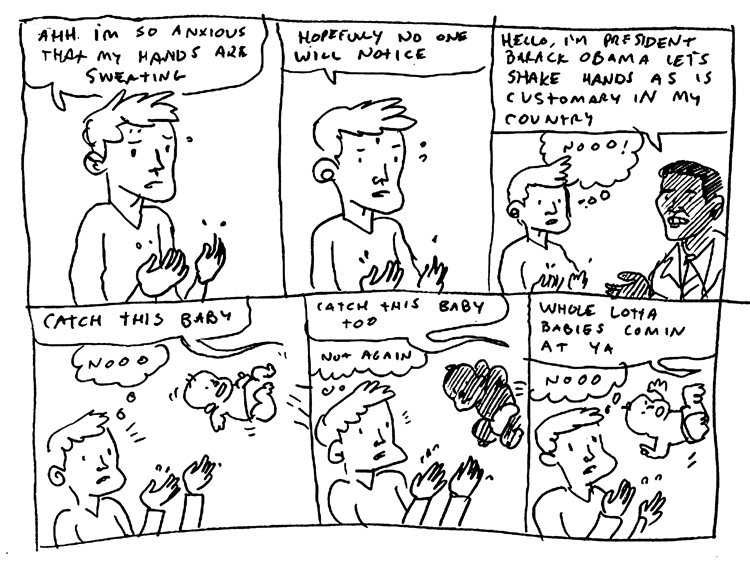 AHH. I'M SO ANXIOUS
THAT MY HANDS ARE
SWEATING
HOPEFULLY NO ONE
WILL NOTICE
HELLO, I'M PRESIDENT
BARACK OBAMA LET'S
SHAKE HANDS AS IS
CUSTOMARY IN MY
COUNTRY
NOOO!
CATCH THIS BABY
NOOO
CATCH THIS BABY
TOO
NOT AGAIN
WHOLE LOTTA
BABIES COMIN
AT YA
NOOO